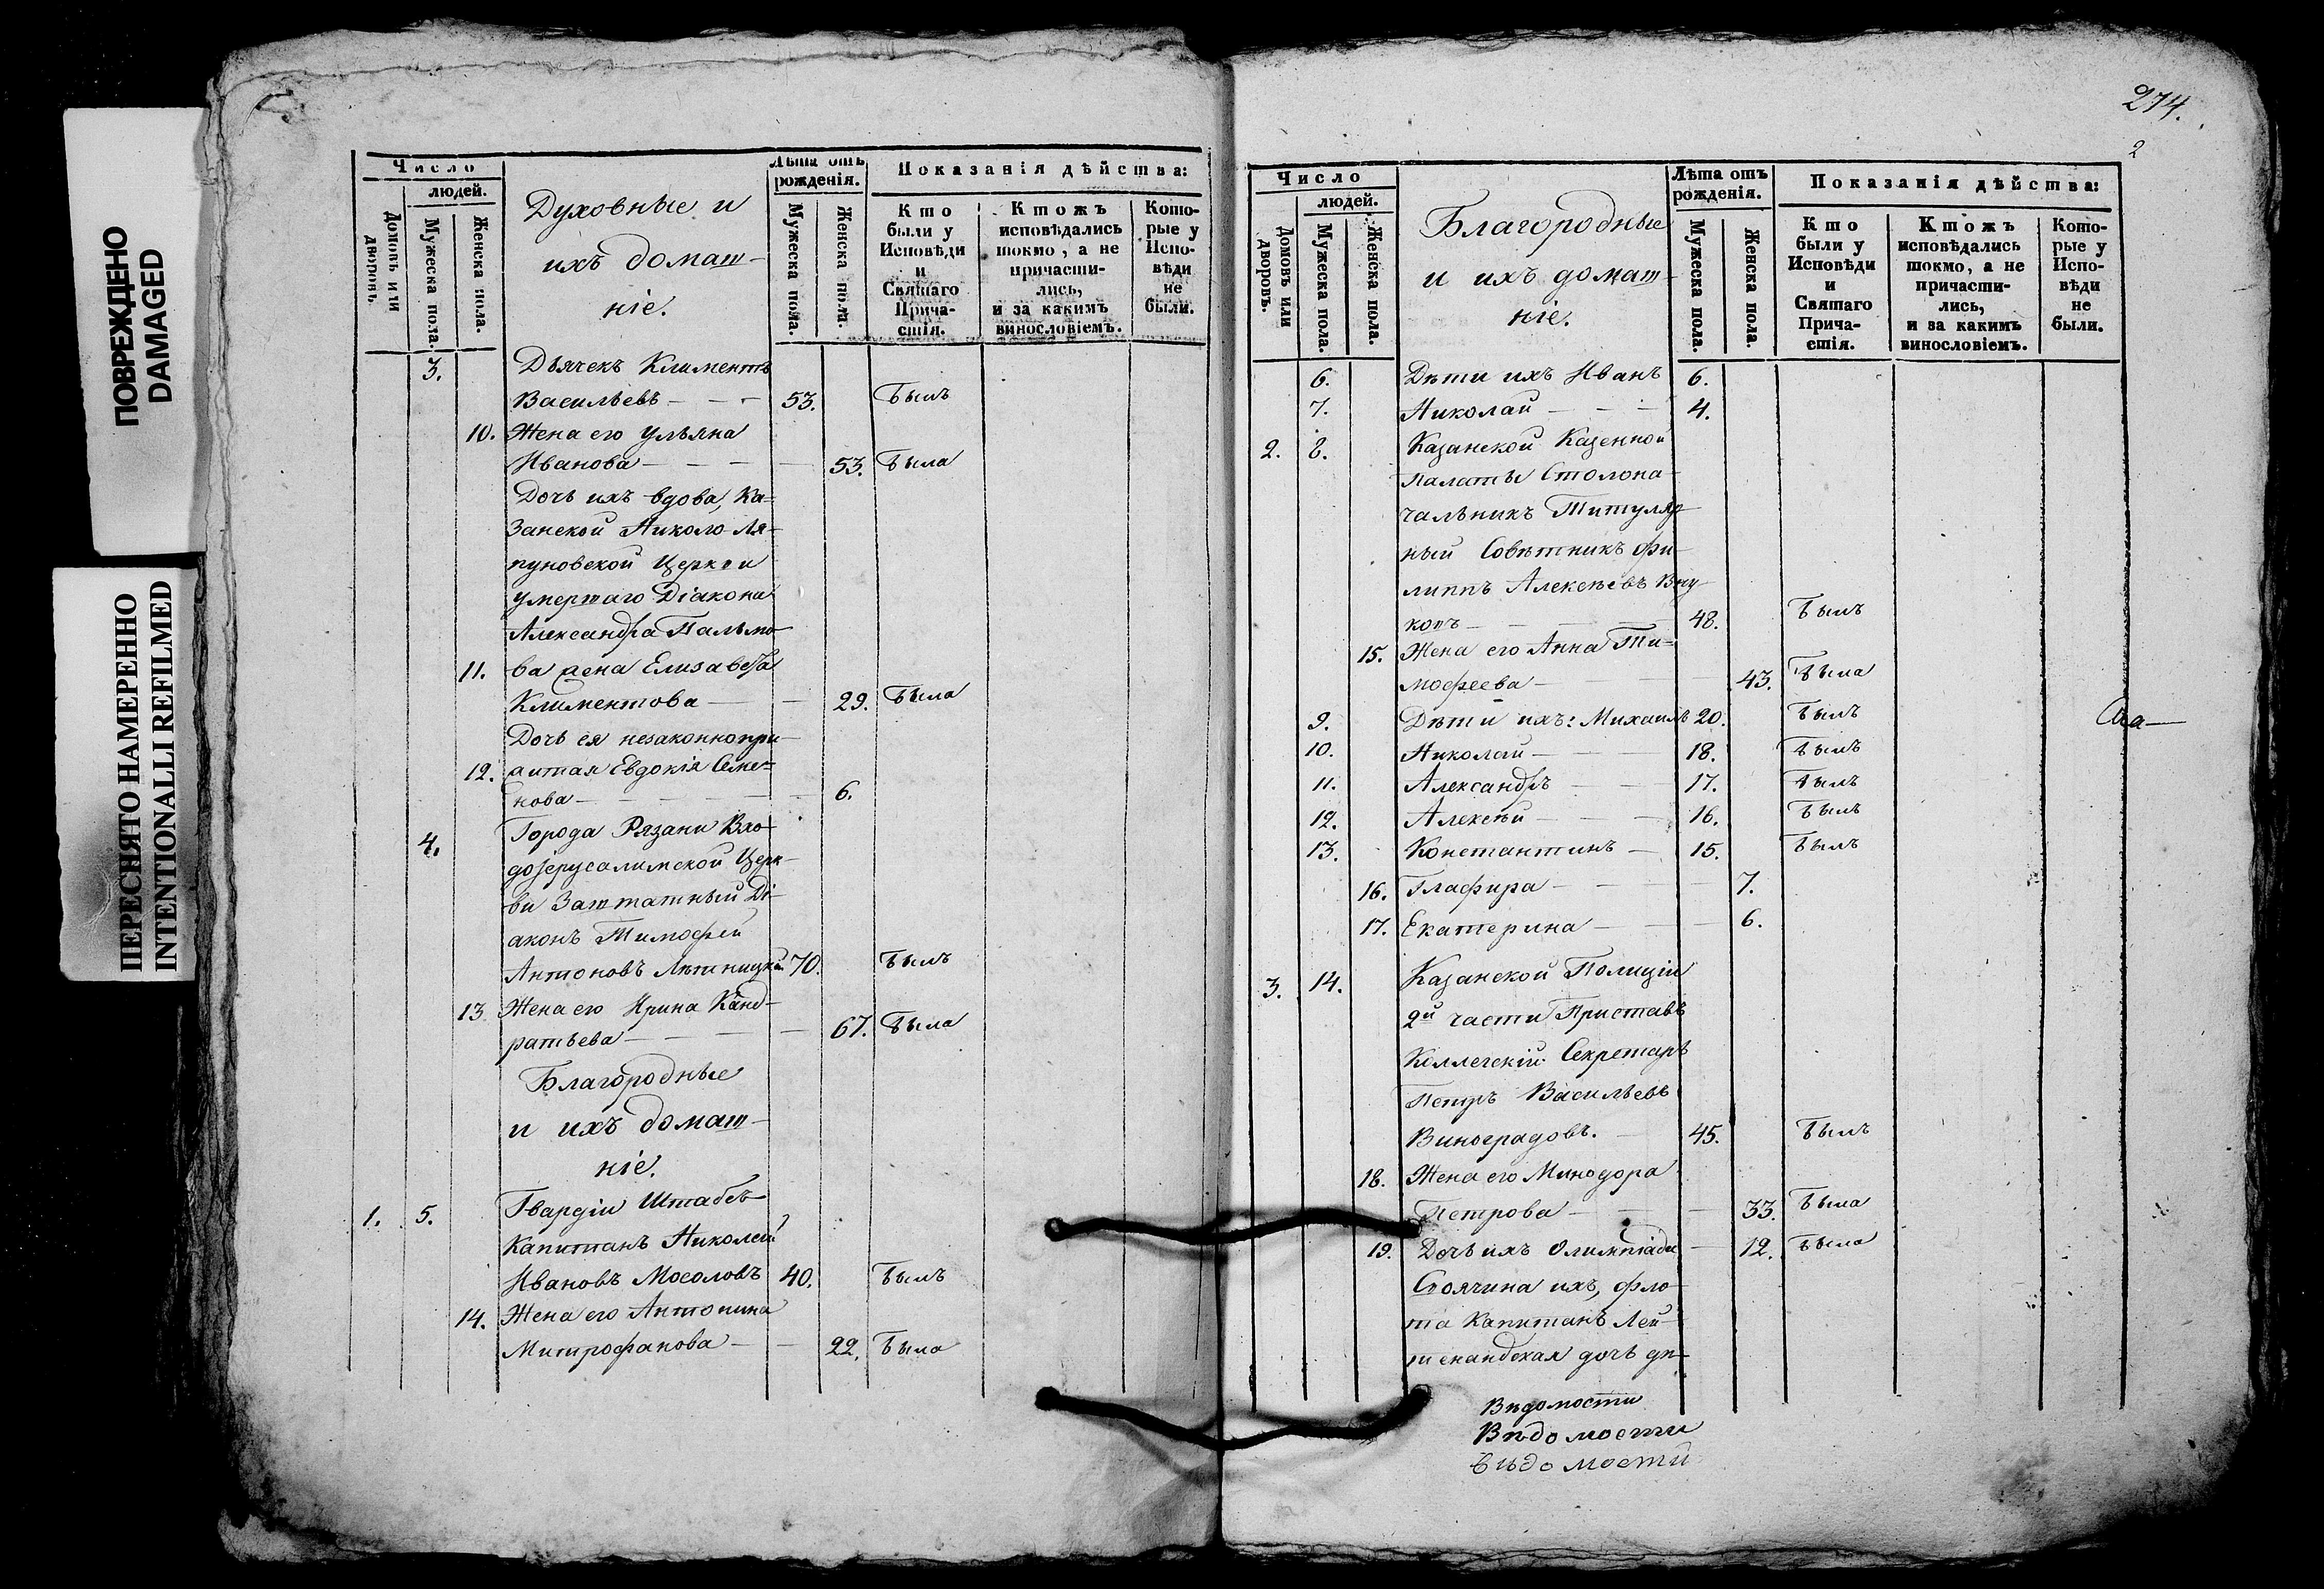 ПОВРЕЖДЕНО
DAMAGED
ПЕРЕСНЯТО НАМЕРЕННО
INTENTIONALLI REFILMED
Число
людей.
Домовъ или дворовъ.
Мужеска пола.
Женска пола.
Духовные и
ихъ домаш-
ніе.
Лѣта отъ
рожденія.
Мужеска пола.
Женска пола.
Показанія дѣйства:
Кто
были у
Исповѣди
и
Святаго
Прича-
стія.
Ктожъ
исповѣдались
токмо, а не
причасти-
лись,
и за какимъ
винословіемъ.
Кото-
рые у
Испо-
вѣди
не
были.
3. Дьячекъ Климентъ
Васильевъ — — — 53. Былъ
10. Жена его Ульяна
Иванова — — — 53. Была
Дочь ихъ вдова, Ка=
занской Николо Ля-
пуновской Церкви
умершаго Діакона
Александра Пальмо-
11. ва жена Елизавета
Климентова — — 29. Была
Дочь ея незаконнопри-
12. житая Евдокія Семе=
нова — — — — — 6.
4. Города Рязани Вхо-
доіерусалимской Церк-
ви Заштатный Ді-
аконъ Тимофей
Антоновъ 70. Былъ
13 Жена его Ирина Канд-
ратьева — — — 67. Была
Благородные
и ихъ домаш-
ніе.
1. 5. Гвардіи Штабсъ-
Капитанъ Николай
Ивановъ Мосоловъ 40. Былъ
14. Жена его Антонина
Митрофанова — — 22. Была
274.
2
Число
людей.
Домовъ или дворовъ.
Мужеска пола.
Женска пола.
Благородные
и ихъ домаш-
ніе.
Лѣта отъ
рожденія.
Мужеска пола.
Женска пола.
Показанія дѣйства:
Кто
были у
Исповѣди
и
Святаго
Прича-
стія.
Ктожъ
исповѣдались
токмо, а не
причасти-
лись,
и за какимъ
винословіемъ.
Кото-
рые у
Испо-
вѣди
не
были.
6. Дѣти ихъ Иванъ 6.
7. Николай — — — 4.
2. 8. Казанской Казенной
Палаты Столона-
чальникъ Титуляр-
ный Совѣтникъ Фи-
липпъ Алексѣевъ Вну-
ковъ — — — — 48. Былъ
15. Жена его Анна Ти=
мофеева — — — 43. Была
9. Дѣти ихъ: Михаилъ 20. Былъ
10. Николай — — — 18. Былъ
11. Александръ — — 17. Былъ
12. Алексѣй — — — 16. Былъ
13. Константинъ — 15. Былъ
16. Глафира — — — — 7.
17. Екатерина — — — 6.
3. 14. Казанской Полиціи
2й части Приставъ
Коллегскій Секретарь
Петръ Васильевъ
Виноградовъ. — 45. Былъ
18. Жена его Минодора
Петрова — — — 33. Была
19. Дочь ихъ Олимпіада — 12. Была
Своячина ихъ, фло-
та Капитанъ Лей-
тенандская дочь дѣ-
Вѣдомости
Вѣдомости
вѣдомости